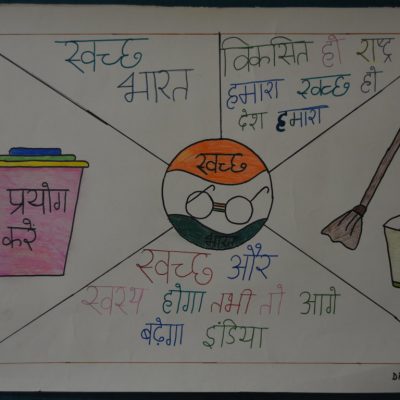 स्वच्छ
भारत
विकसित हो राष्ट्र
हमारा स्वच्छ हो
देश हमारा
स्वच्छ
भारत
प्रयोग
करे
स्वच्छ और
स्वस्थ होगा तभी तो आगे
बढ़ेगा इंडिया